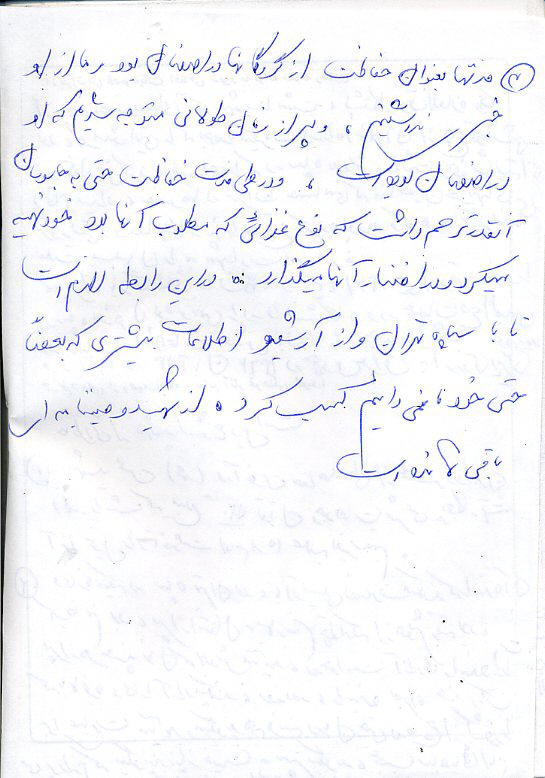 ② مدتها بعنوان حفاظت از گروگانها در اصفهان بود و ما از او
خبری نداشتیم ، و پس از زمان طولانی متوجه شدیم که او
در اصفهان بوده است ، و در طی مدت حفاظت حتی به جاسوسان
آنقدر ترحم داشت که نوع غذائی که مطلوب آنها بود خود تهیه
میکرد و در اختیار آنها میگذارد . در این رابطه لازم است
تا با سپاه تهران و از آرشیو اطلاعات بیشتری که بعضاً
حتی خود ما نمی دانیم کسب کرد . از شهید وصیتنامه ای
باقی نمانده است